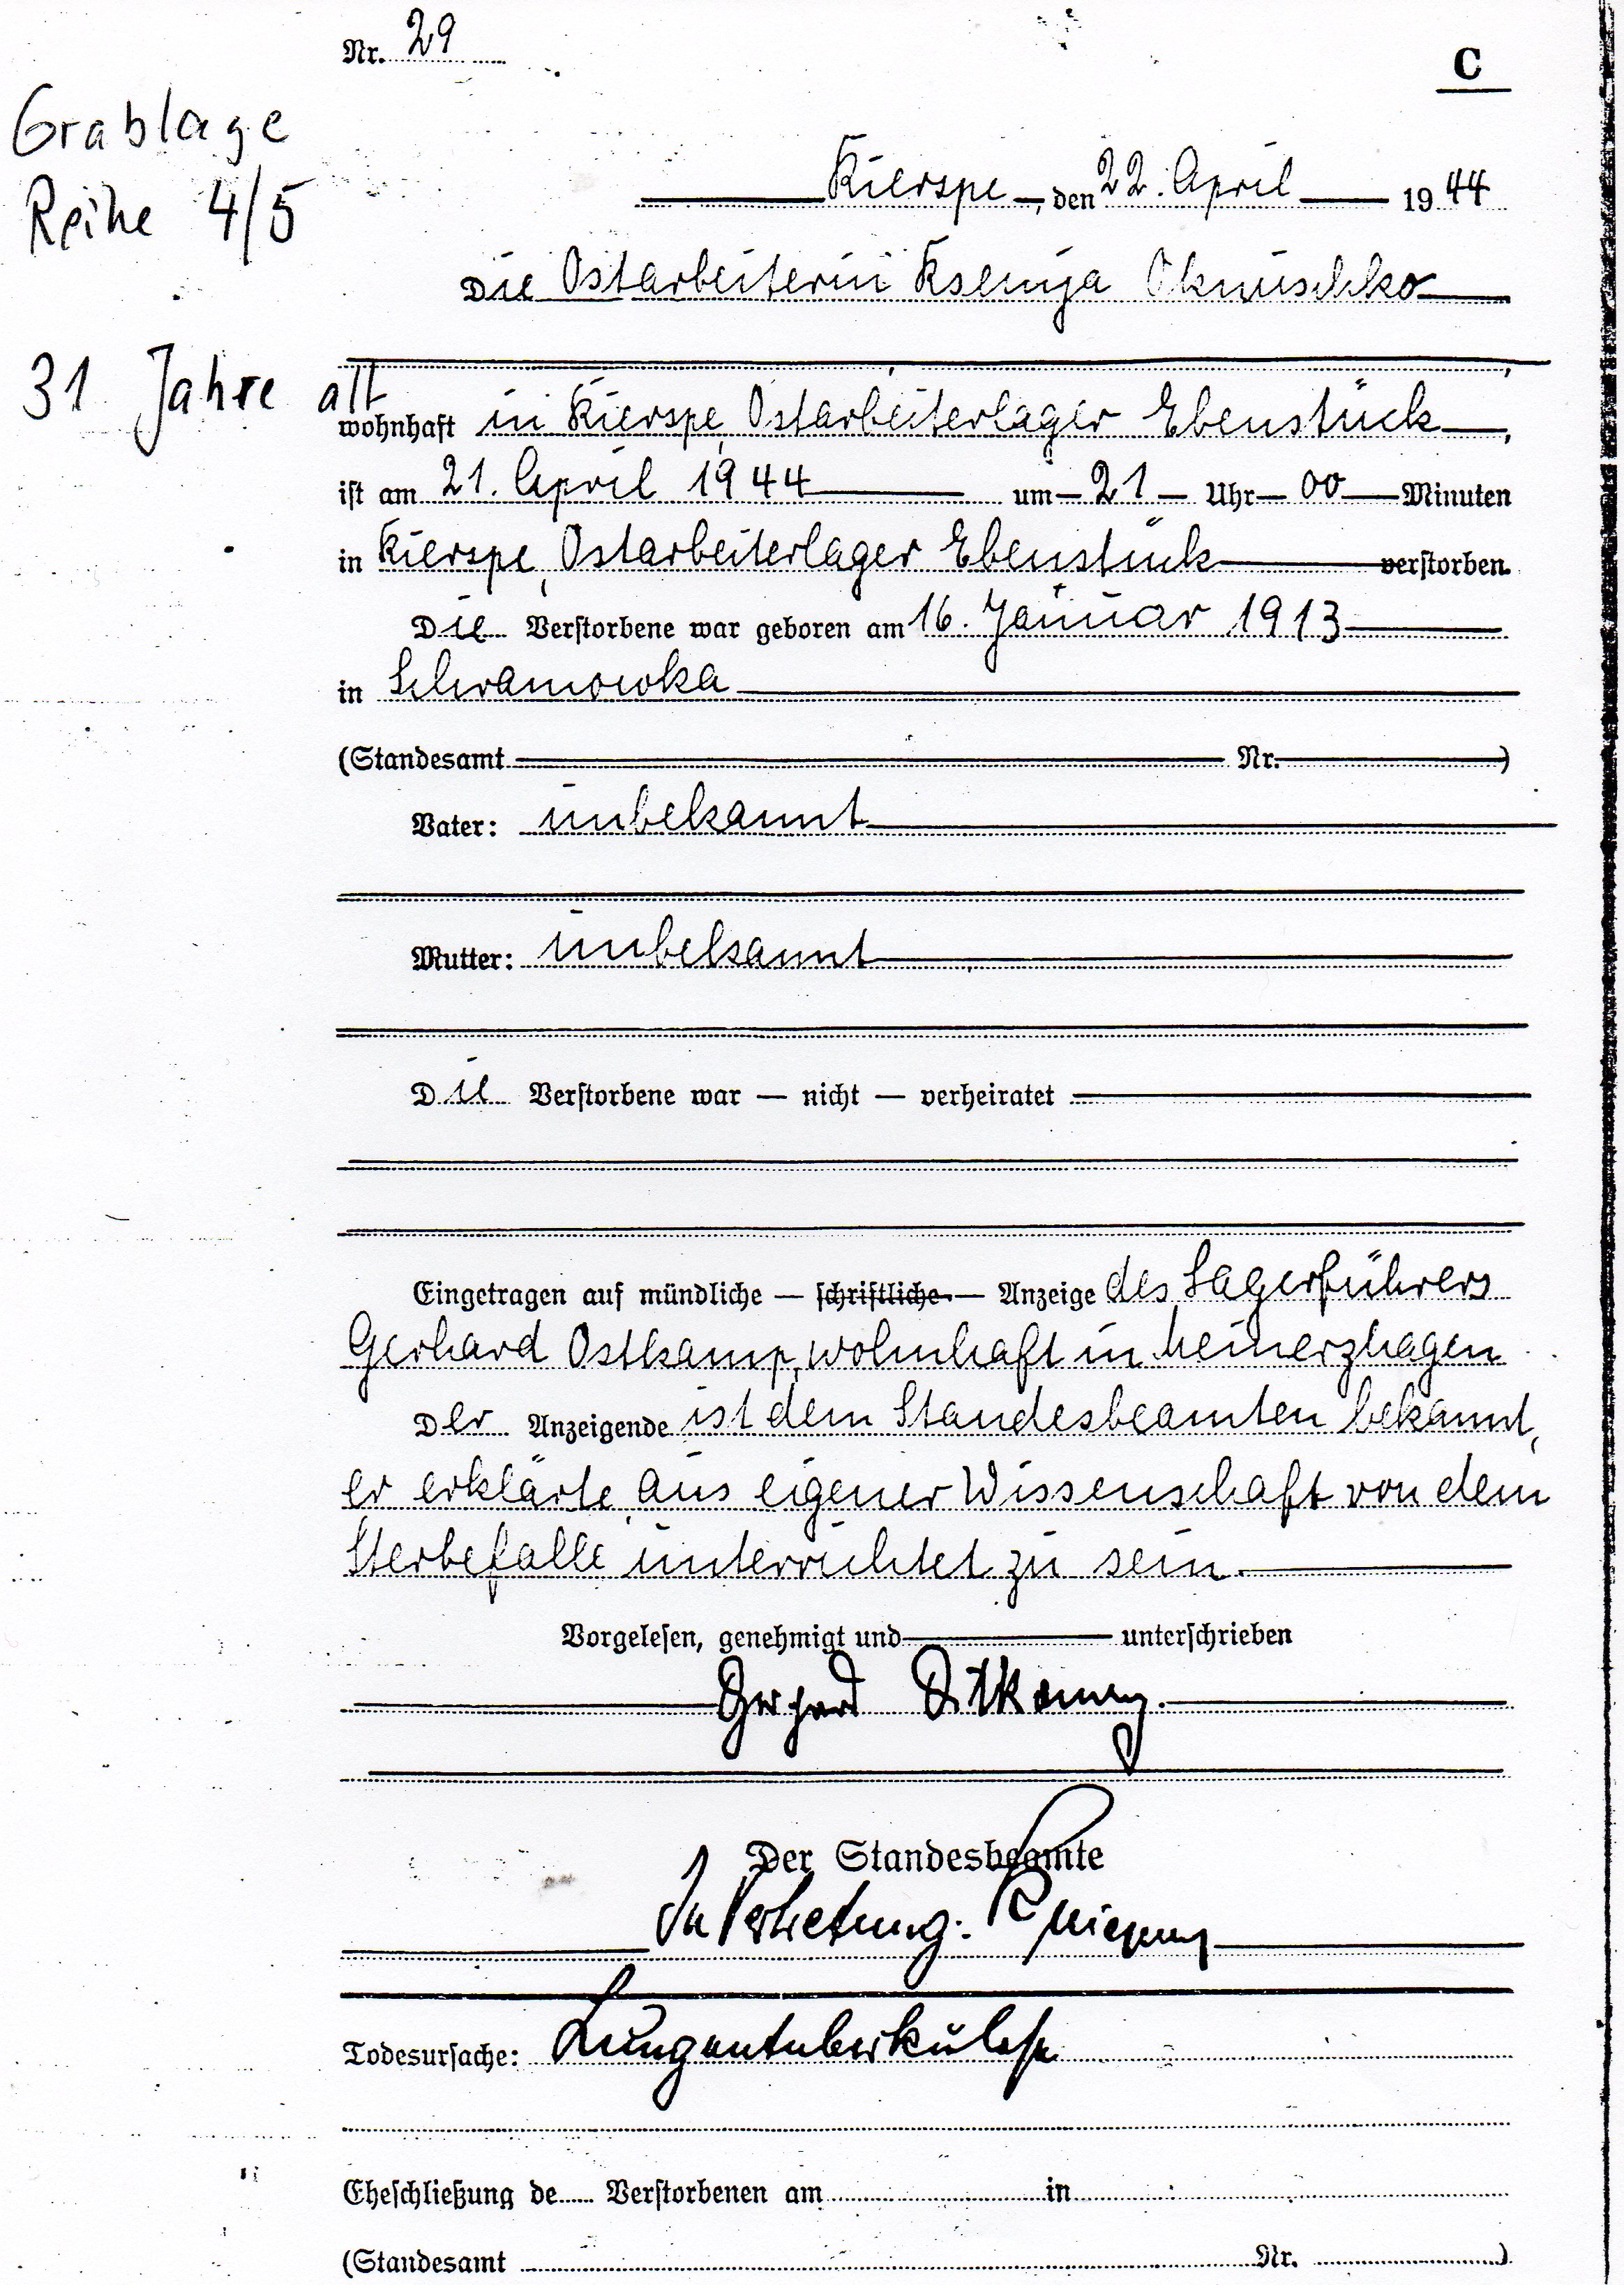 Nr. 29
C
Grablage
Reihe 4/5
Kierspe, den 22. April 1944
Die Ostarbeiterin Ksenija
31 Jahre alt
wohnhaft in Kierspe, Ostarbeiterlager Ebenstück,
ist am 21. April 1944 um 21 Uhr 00 Minuten
in Kierspe, Ostarbeiterlager Ebenstück verstorben.
Die Verstorbene war geboren am 16. Januar 1913
in
(Standesamt Nr. )
Vater: unbekannt
Mutter: unbekannt
Die Verstorbene war — nicht — verheiratet
Eingetragen auf mündliche — schriftliche — Anzeige des Lagerführers
Gerhard Ostkamp, wohnhaft in Meinerzhagen
Der Anzeigende ist dem Standesbeamten bekannt,
er erklärte, aus eigener Wissenschaft von dem
Sterbefalle unterrichtet zu sein.
Vorgelesen, genehmigt und unterschrieben
Gerhard Ostkamp.
Der Standesbeamte
In Vertretung:
Todesursache: Lungentuberkulose
Eheschließung de Verstorbenen am in
(Standesamt Nr. )